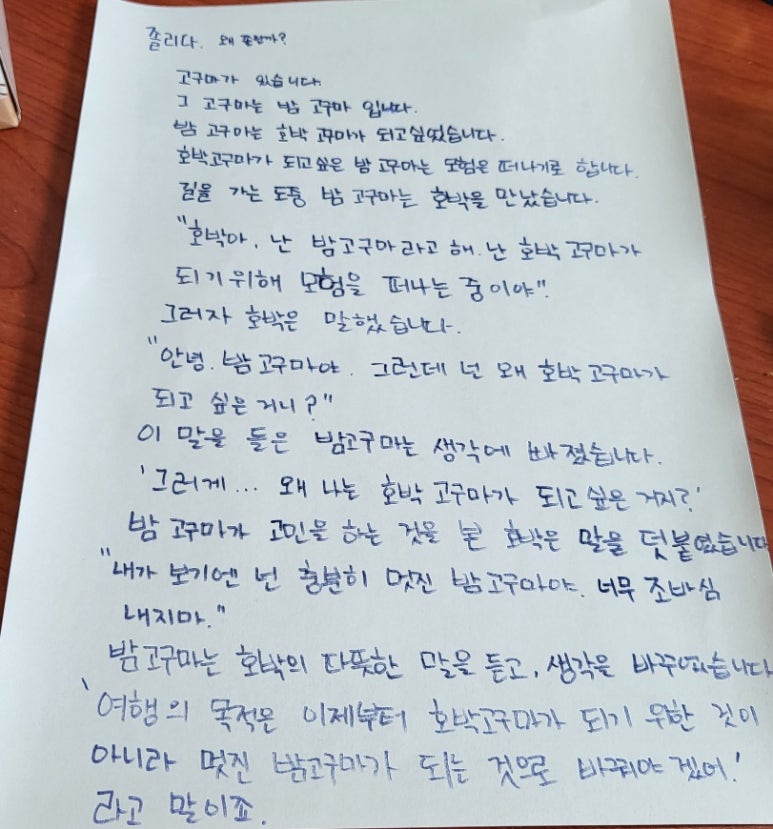 졸리다. 왜 졸릴까?
고구마가 있습니다.
그 고구마는 밤 고구마 입니다.
밤 고구마는 호박 고구마가 되고싶었습니다.
호박고구마가 되고싶은 밤 고구마는 모험은 떠나기로 합니다.
길을 가는 도중 밤 고구마는 호박을 만났습니다.
"호박아. 난 밤고구마라고 해. 난 호박 고구마가
되기위해 모험을 떠나는 중이야".
그러자 호박은 말했습니다.
"안녕. 밤고구마야. 그런데 넌 왜 호박고구마가
되고 싶은 거니?"
이 말을 들은 밤고구마는 생각에 빠졌습니다.
'그러게... 왜 나는 호박고구마가 되고싶은 거지?'
밤 고구마가 고민을 하는 것을 본 호박은 말을 덧붙였습니다
"내가 보기엔 넌 충분히 멋진 밤고구마야. 너무 조바심
내지마."
밤고구마는 호박의 따뜻한 말을 듣고, 생각을 바꾸었습니다
'여행의 목적은 이제부터 호박고구마가 되기 위한 것이
아니라 멋진 밤고구마가 되는 것으로 바꿔야겠어.'
라고 말이죠.